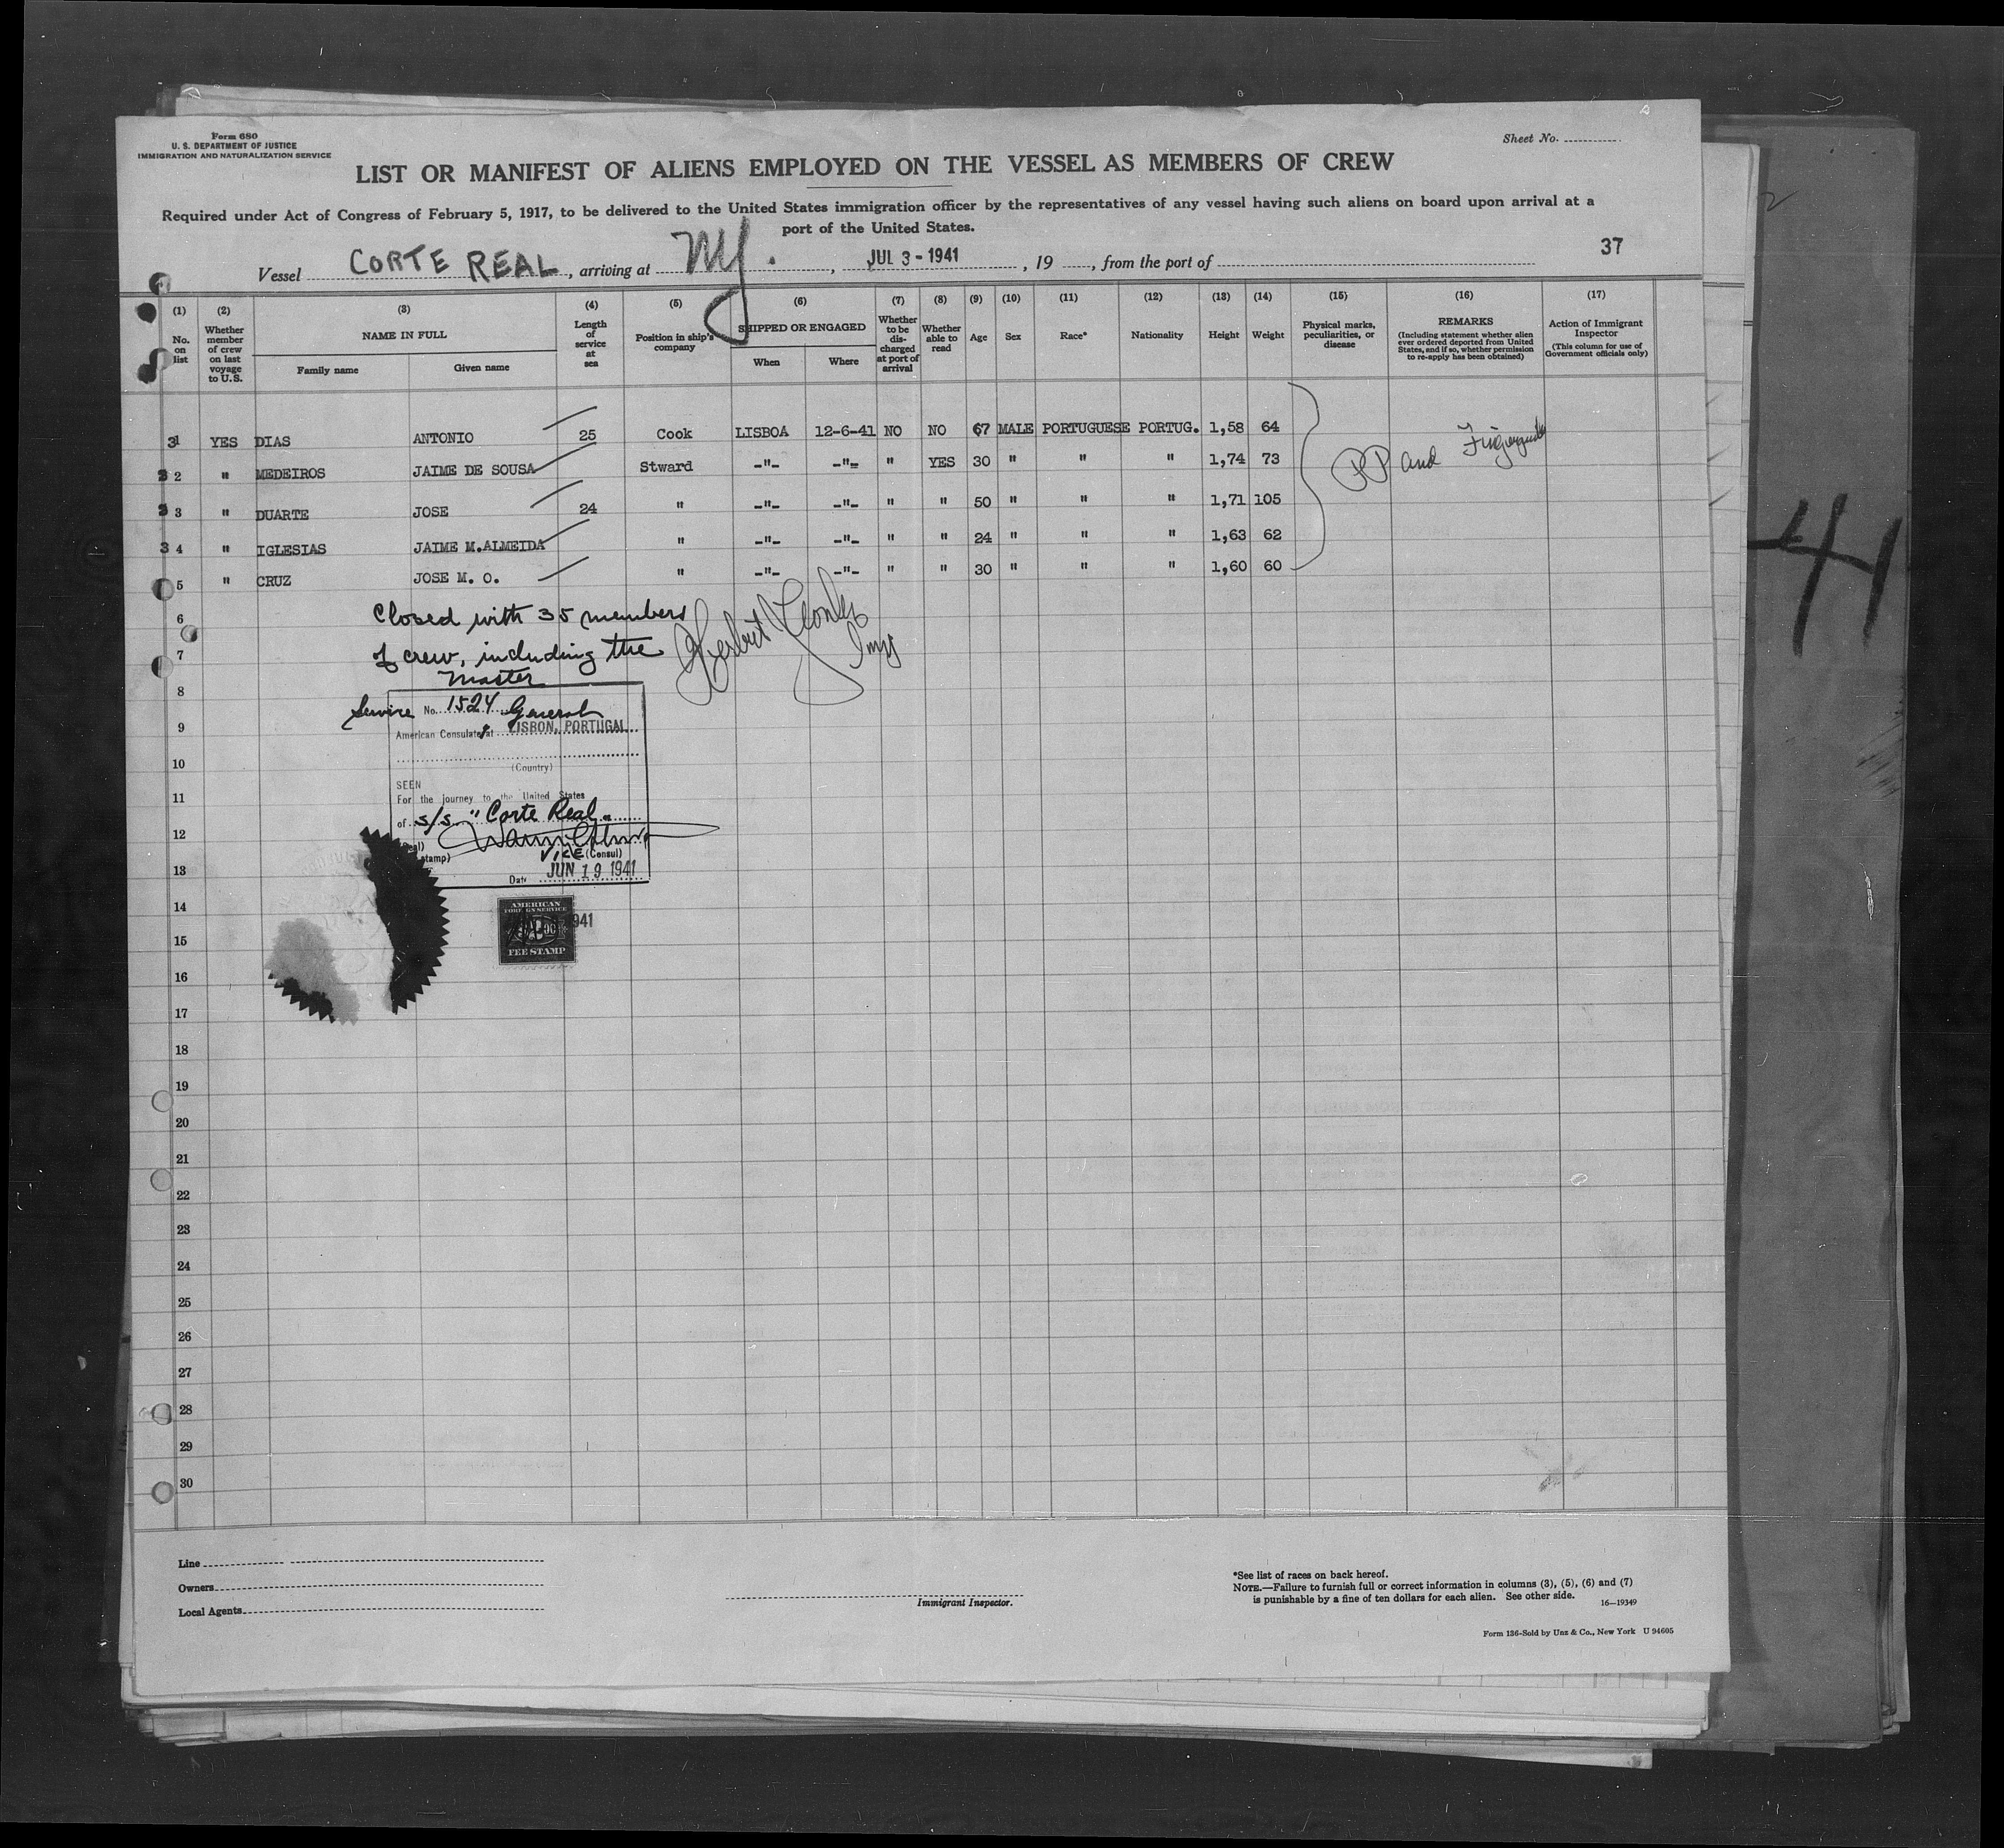 Form 680
U. S. DEPARTMENT OF JUSTICE
IMMIGRATION AND NATURALIZATION SERVICE
Sheet No.
LIST OR MANIFEST OF ALIENS EMPLOYED ON THE VESSEL AS MEMBERS OF CREW
Required under Act of Congress of February 5, 1917, to be delivered to the United States immigration officer by the representatives of any vessel having such aliens on board upon arrival at a
port of the United States.
37
Vessel CORTE REAL, arriving at NY., JUL 3 - 1941, 19, from the port of
(1) (2) (3) (4) (5) (6) (7) (8) (9) (10) (11) (12) (13) (14) (15) (16) (17)
No. on list
Whether member of crew on last voyage to U.S.
NAME IN FULL
Family name Given name
Length of service at sea
Position in ship's company
SHIPPED OR ENGAGED
When Where
Whether to be discharged at port of arrival
Whether able to read
Age
Sex
Race*
Nationality
Height
Weight
Physical marks, peculiarities, or disease
REMARKS
(Including statement whether alien ever ordered deported from United States, and if so, whether permission to re-apply has been obtained)
Action of Immigrant Inspector
(This column for use of Government officials only)
31 YES DIAS ANTONIO 25 Cook LISBOA 12-6-41 NO NO 67 MALE PORTUGUESE PORTUG. 1,58 64
2 " MEDEIROS JAIME DE SOUSA Stward -"- -"- " YES 30 " " " 1,74 73
3 " DUARTE JOSE 24 " -"- -"- " " 50 " " " 1,71 105
3 4 " IGLESIAS JAIME M.ALMEIDA " -"- -"- " " 24 " " " 1,63 62
5 " CRUZ JOSE M. O. " -"- -"- " " 30 " " " 1,60 60
PP and
Closed with 35 members
of crew, including the
Master
Service No. 1524 General
American Consulate at LISBON, PORTUGAL
(Country)
SEEN
For the journey to the United States
of S/S. "Corte Real"
VICE (Consul)
stamp)
Date JUN 19 1941
AMERICAN
FOREIGN SERVICE
FEE STAMP
1941
6
7
8
9
10
11
12
13
14
15
16
17
18
19
20
21
22
23
24
25
26
27
28
29
30
Line
Owners
Local Agents
Immigrant Inspector.
*See list of races on back hereof.
NOTE.—Failure to furnish full or correct information in columns (3), (5), (6) and (7)
is punishable by a fine of ten dollars for each alien. See other side.
16—19349
Form 136-Sold by Unz & Co., New York U 94605
41